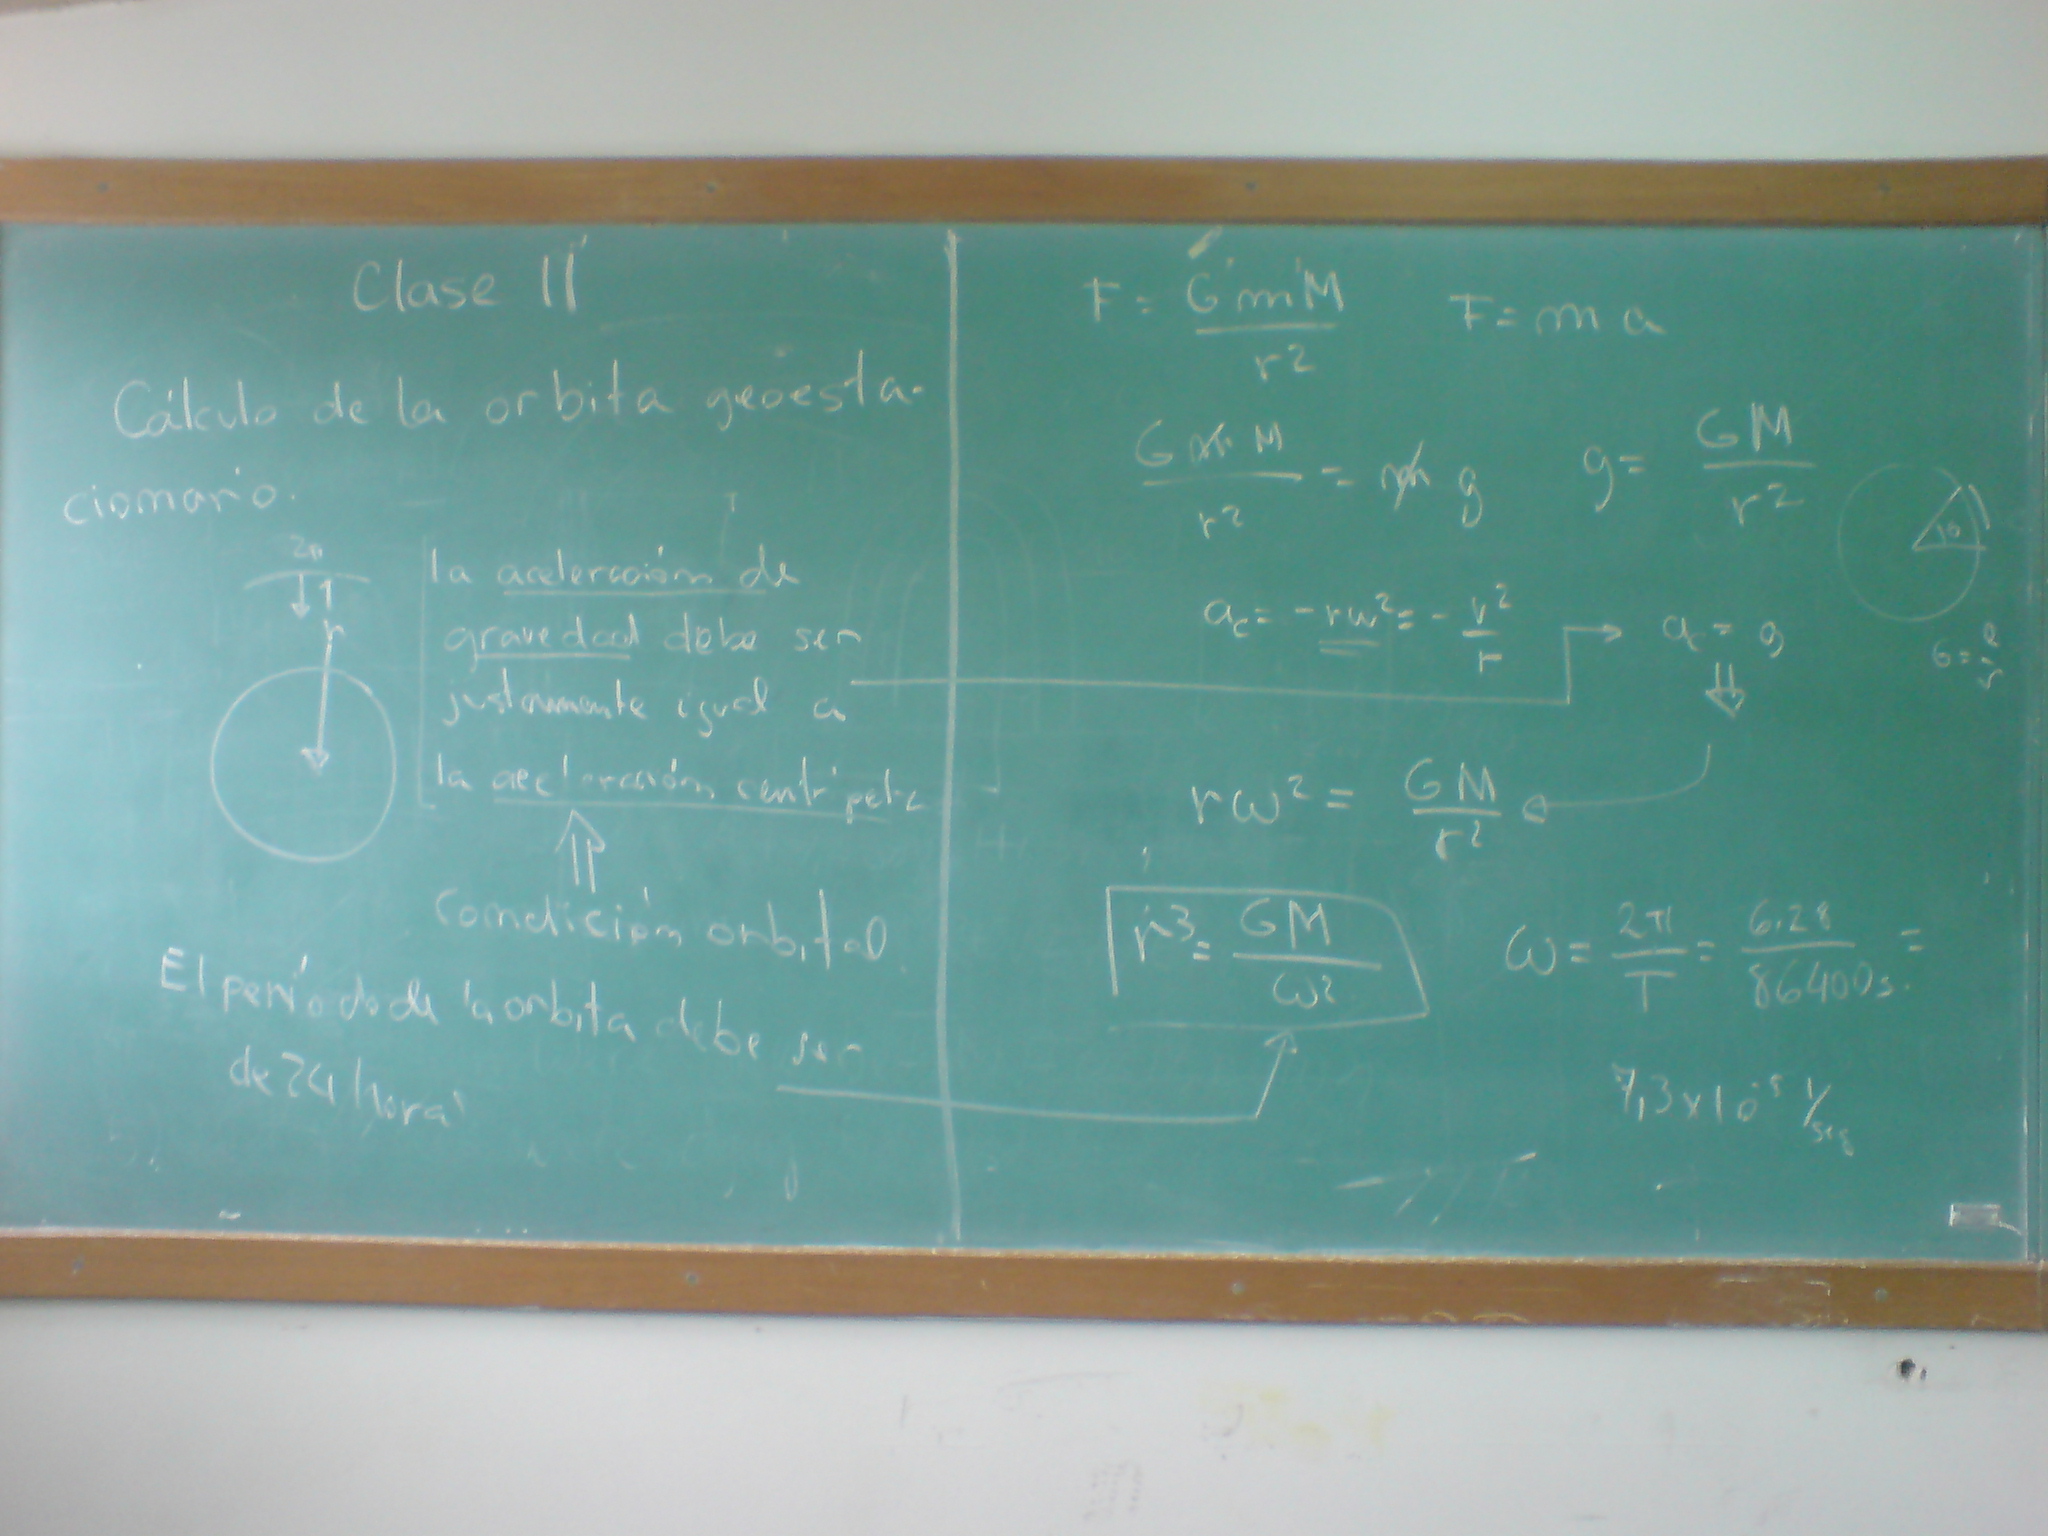 Clase II
Cálculo de la orbita geoesta-
cionario.
r
la aceleración de
gravedad debe ser
justamente igual a
la aceleración centrípeta
Condición orbital
El período de la orbita debe ser
de 24 horas
F = GmM / r²
F = m a
G m M / r² = m g
g = GM / r²
a_c = -rω² = - v² / r
a_c = g
θ = l / r
rω² = GM / r²
r³ = GM / ω²
ω = 2π / T = 6.28 / 86400s. =
7,3 x 10⁻⁵ 1/seg